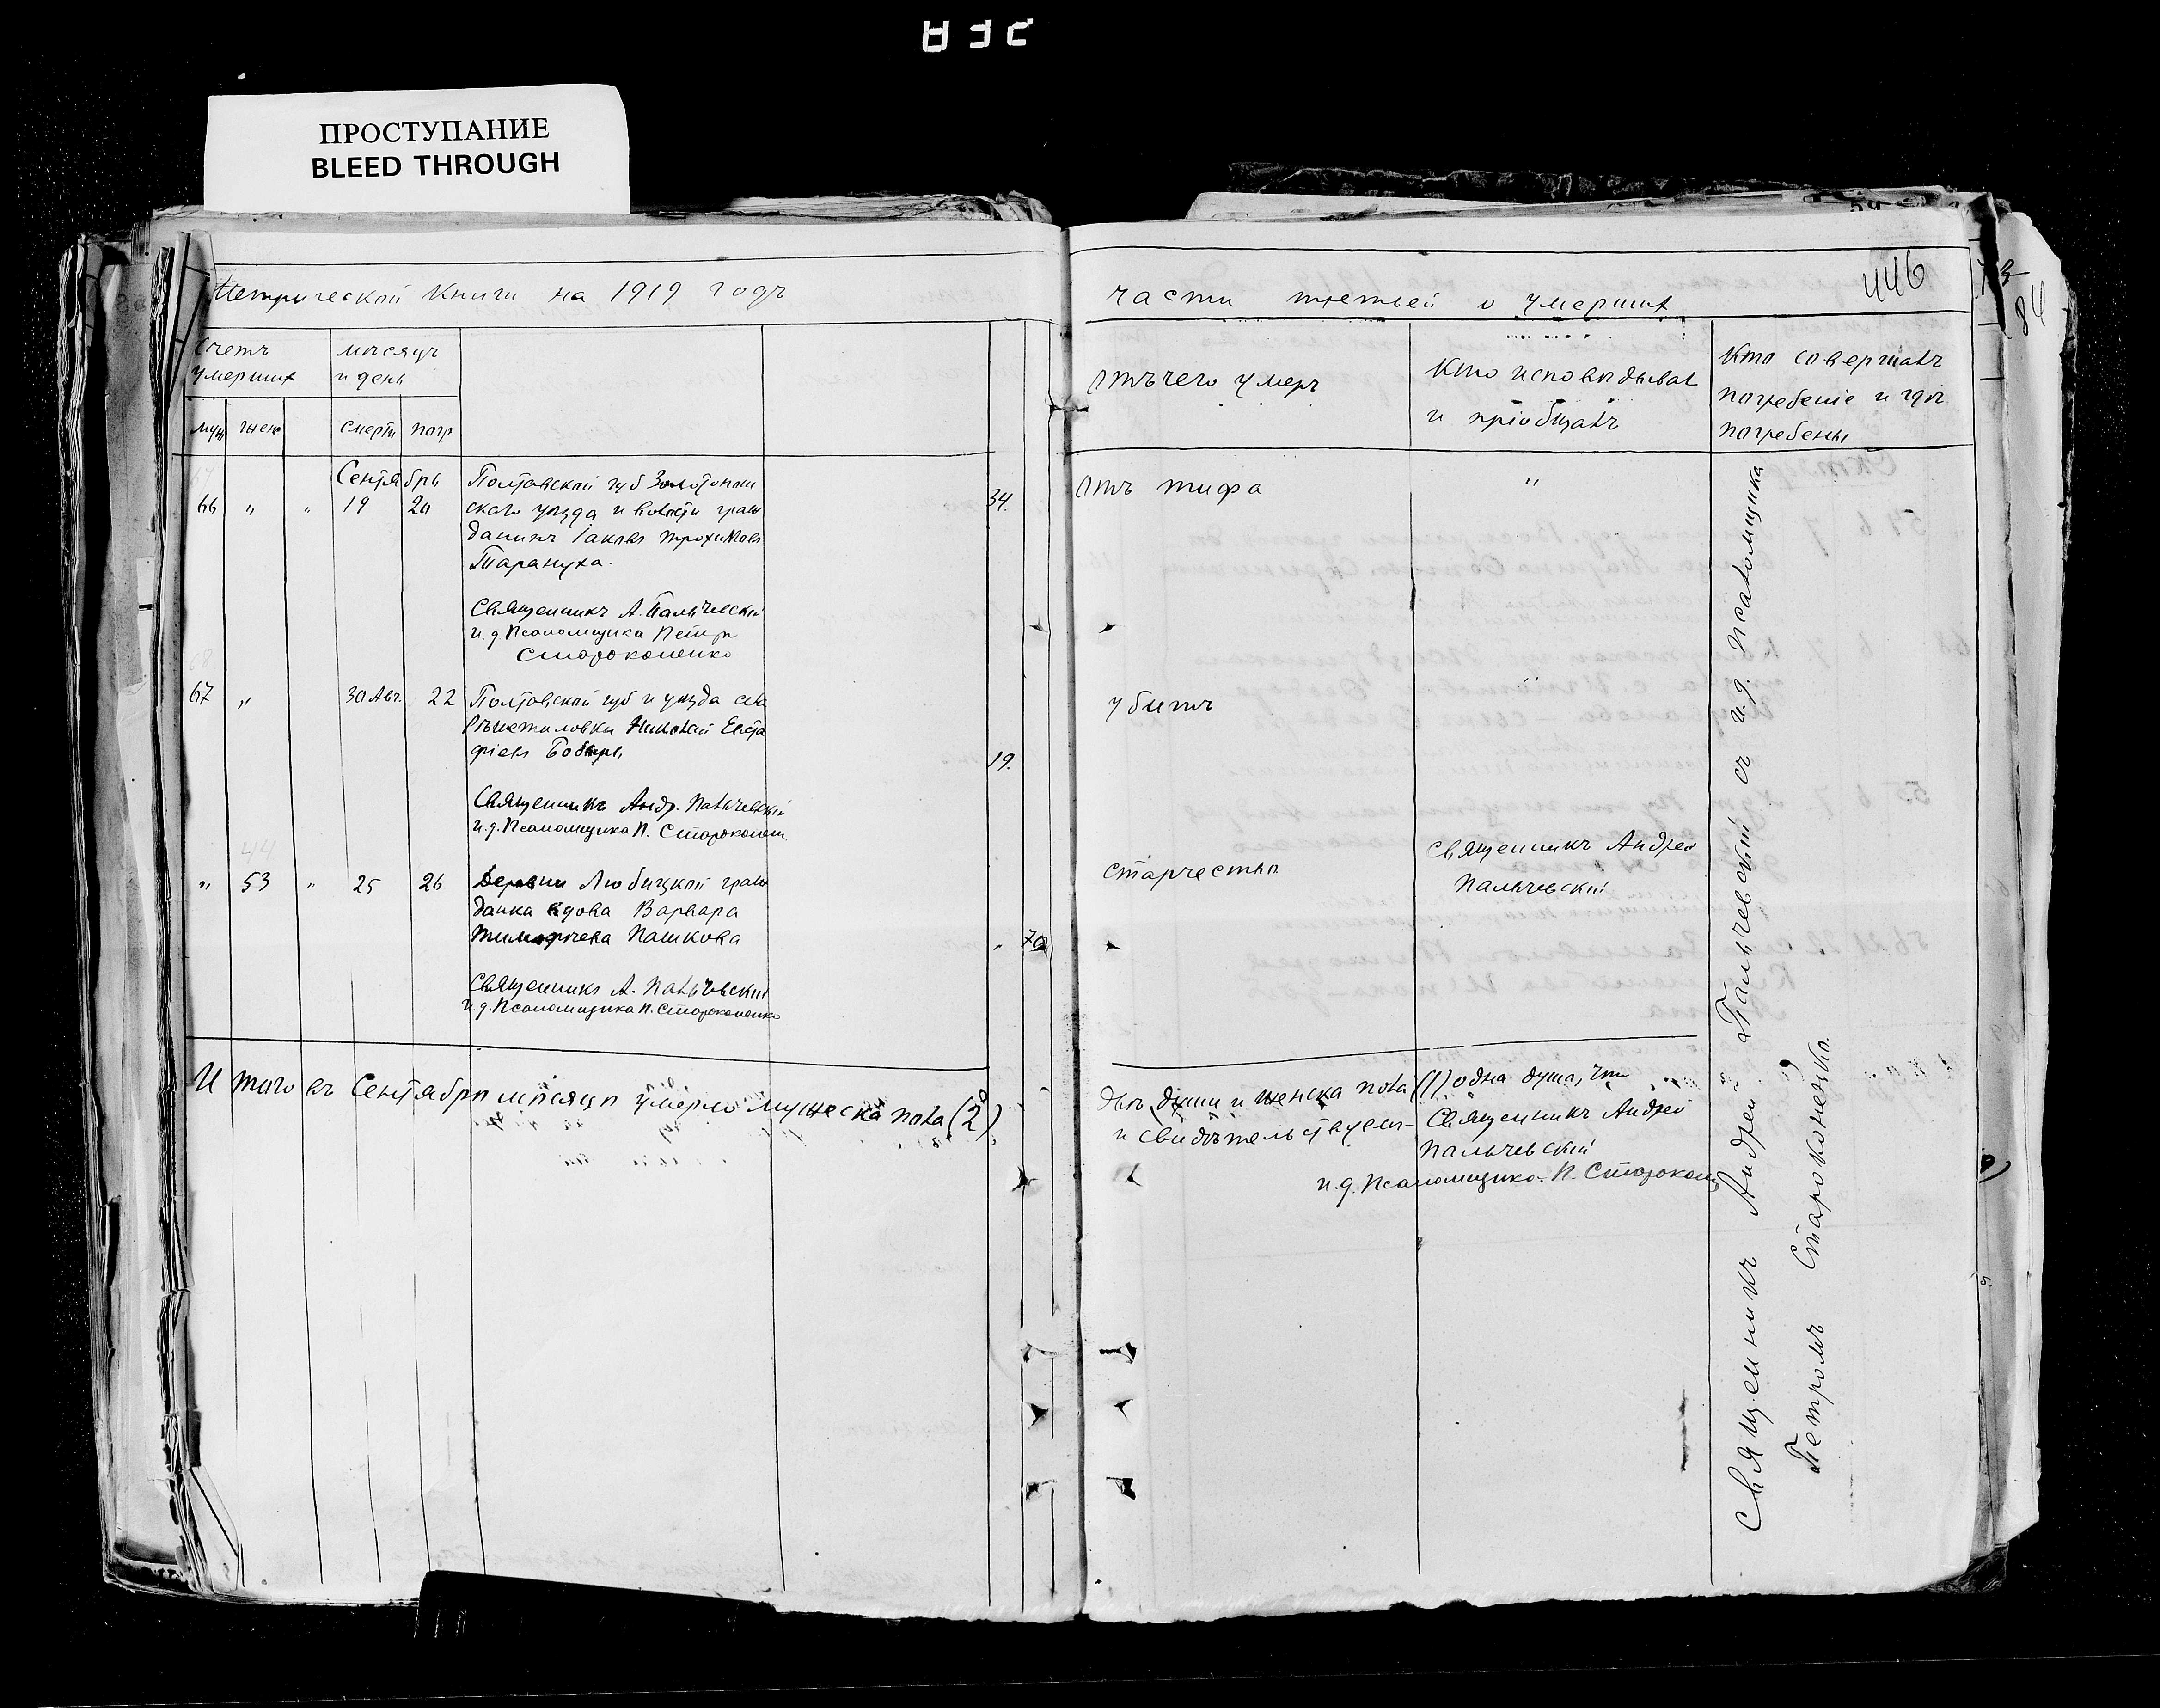 ПРОСТУПАНИЕ
BLEED THROUGH
Метрической Книги на 1919 годъ
части третьей о умершихъ
446
Счетъ
умершихъ
мѣсяцъ
и день
муж
жен
смерт
погр
отъ чего умеръ
Кто исповѣдывал
и пріобщалъ
Кто совершалъ
погребеніе и гдѣ
погребены
Сентябрь
66 " " 19 20
Полтавской губ Золотонош
скаго уѣзда и волости граж
данинъ Іаковъ Трохимовъ
Тарануха.
34.
отъ тифа
"
Священникъ А. Пальчевскій
и.д. Псаломщика Петръ
Староконенко
67 " 30 Авг. 22
Полтавской губ и уѣзда села
Николай Евста
фіевъ Бобырь
19.
убитъ
"
Священникъ Андр. Пальчевскій
и.д. Псаломщика П. Староконен
44
" 53 " 25 26
Деревни Любицкой граж
данка вдова Варвара
Тимофѣева Пашкова
" 70
старчества
Священникъ Андрей
Пальчевскій
Священникъ А. Пальчевскій
и.д. Псаломщика П. Староконенко
Итого въ Сентябрѣ мѣсяцѣ умерло мужеска пола (2)
двѣ души и женска пола (1) одна душа, что
и свидѣтельствуемъ
Священникъ Андрей
Пальчевскій
и.д. Псаломщика П. Староконен
Священникъ Андрей Пальчевскій съ и.д. псаломщика
Петромъ Староконенко.
84